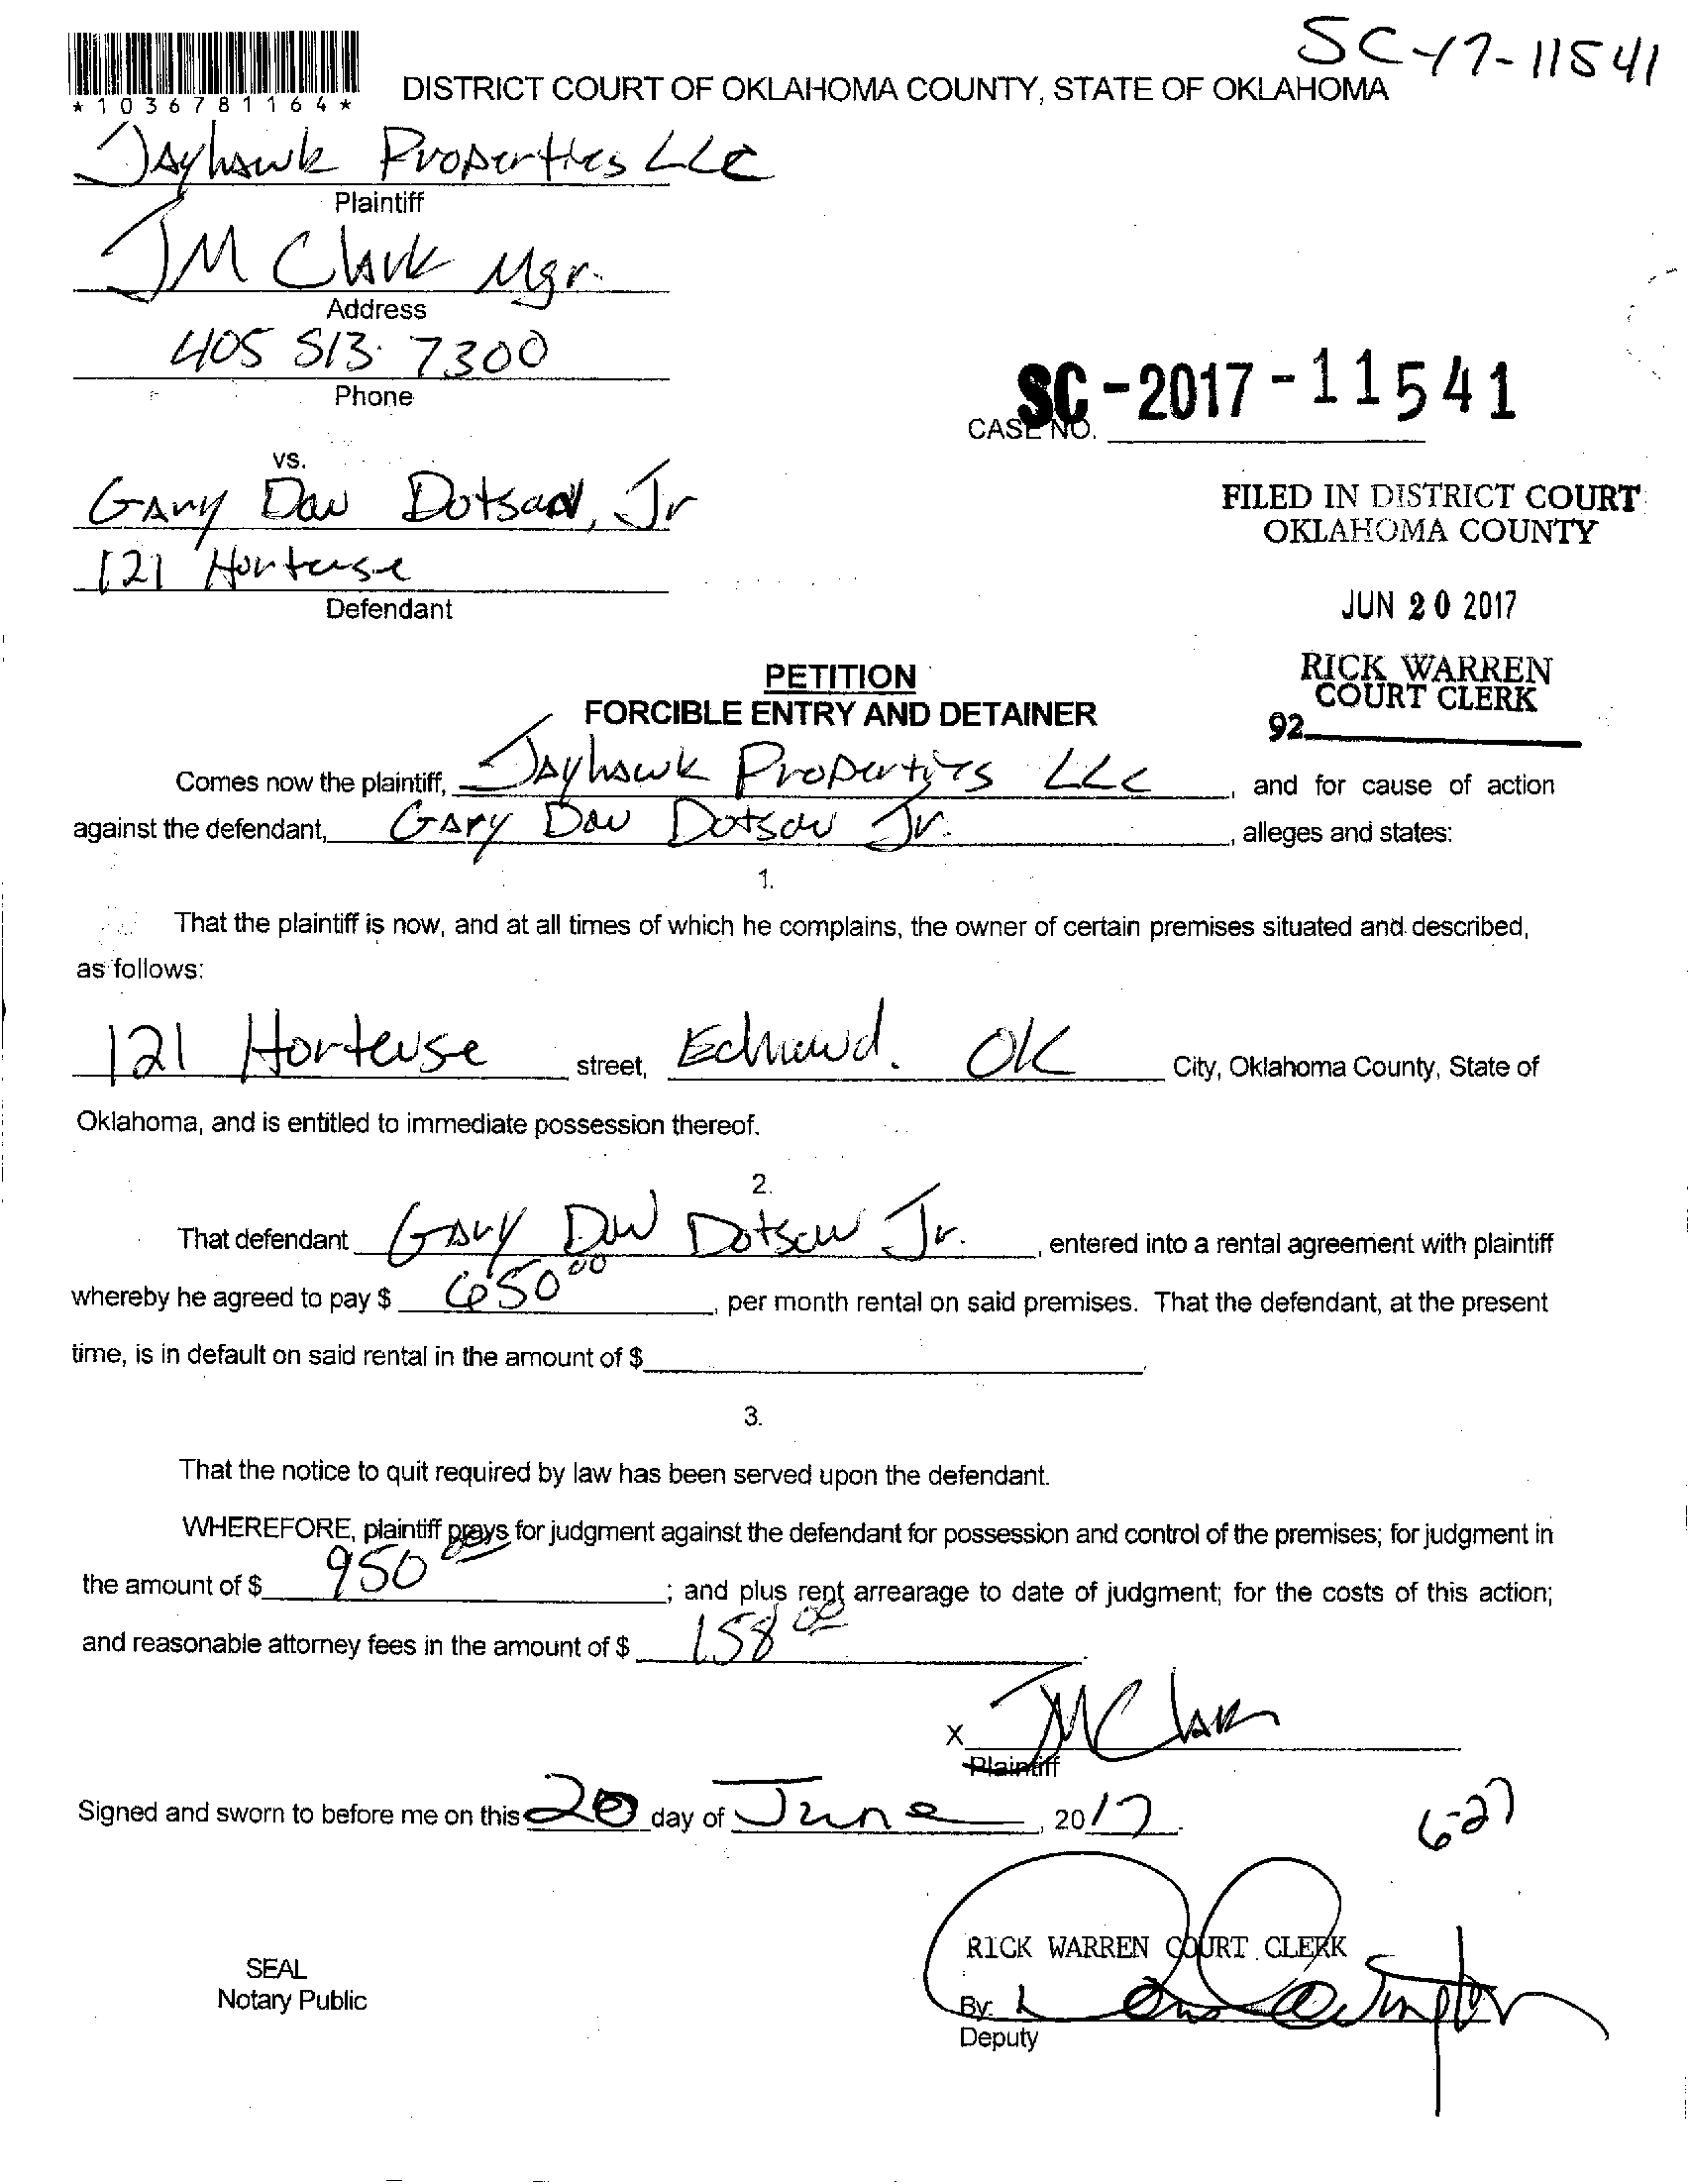 SC-17-11541
*1036781164*
DISTRICT COURT OF OKLAHOMA COUNTY, STATE OF OKLAHOMA
JAyhawk Properties LLC
Plaintiff
JM Clark Mgr.
Address
405 513. 7300
Phone
SC-2017-11541
CASE NO.
vs.
GAry Dan Dotson, Jr
121 Hortense
Defendant
FILED IN DISTRICT COURT
OKLAHOMA COUNTY
JUN 20 2017
RICK WARREN
COURT CLERK
92
PETITION
FORCIBLE ENTRY AND DETAINER
Comes now the plaintiff, JAyhawk Properties LLC, and for cause of action
against the defendant, GAry Dan Dotson Jr., alleges and states:
1.
That the plaintiff is now, and at all times of which he complains, the owner of certain premises situated and described,
as follows:
121 Hortense street, Edmond. OK City, Oklahoma County, State of
Oklahoma, and is entitled to immediate possession thereof.
2.
That defendant GAry Dan Dotson Jr., entered into a rental agreement with plaintiff
whereby he agreed to pay $ 650 00, per month rental on said premises. That the defendant, at the present
time, is in default on said rental in the amount of $
3.
That the notice to quit required by law has been served upon the defendant.
WHEREFORE, plaintiff prays for judgment against the defendant for possession and control of the premises; for judgment in
the amount of $ 950 00; and plus rent arrearage to date of judgment; for the costs of this action;
and reasonable attorney fees in the amount of $ 158 00
X JM Clark
Plaintiff
Signed and sworn to before me on this 20 day of June, 2017.
6-27
RICK WARREN COURT CLERK
SEAL
Notary Public
By:
Deputy